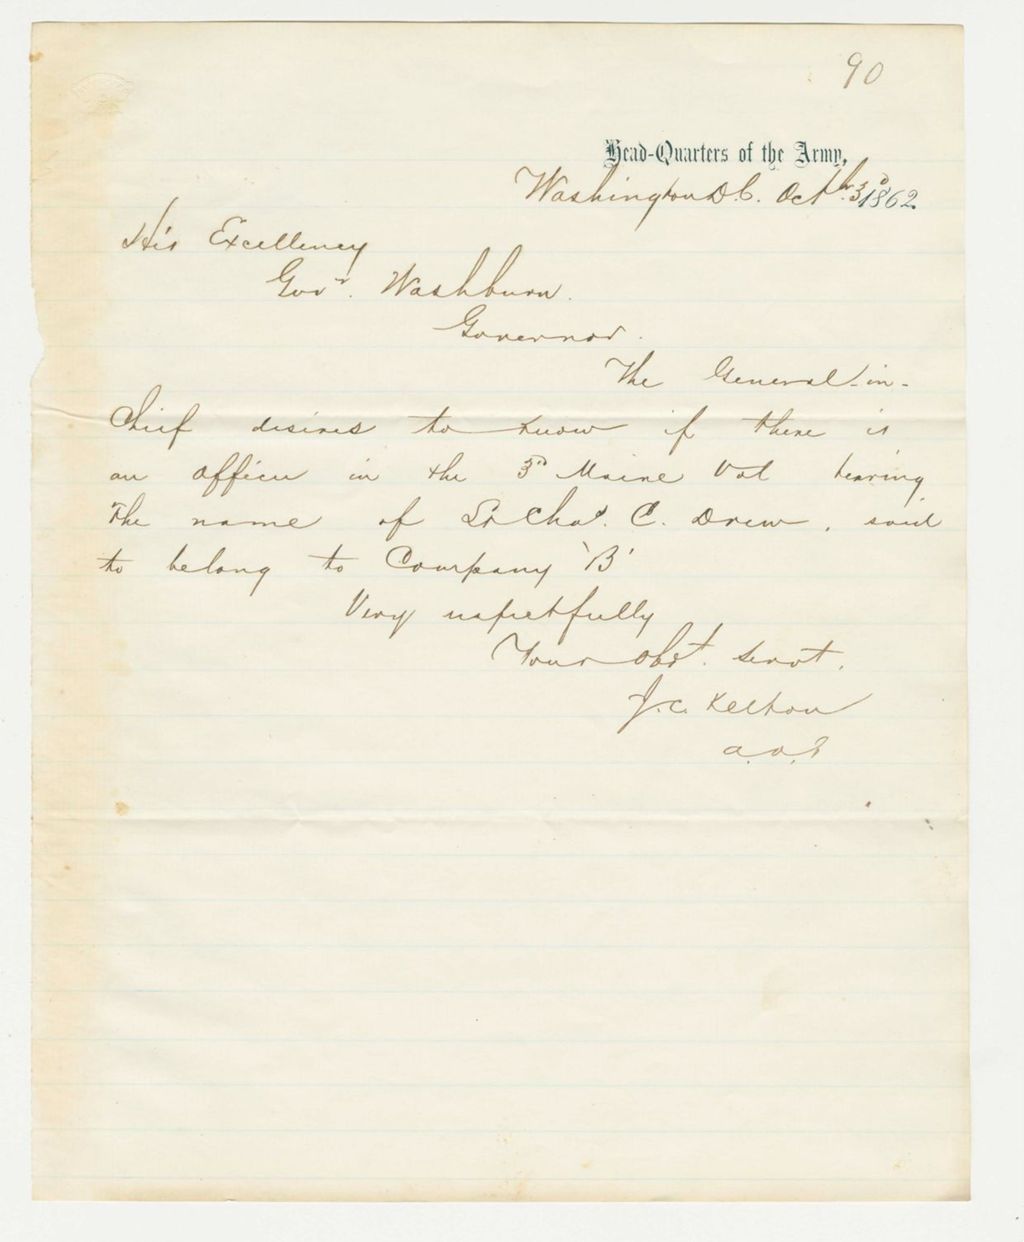 90
Head-Quarters of the Army,
Washington D.C. Octbr. 3d 1862
His Excellency
Govr. Washburn.
Governor.
The General-in-
Chief desires to know if there is
an officer in the 3d Maine Vol bearing
the name of Lt Chas. C. Drew, said
to belong to Company 'B'
Very respectfully
Your obdt. Servt.
J.C. Kelton